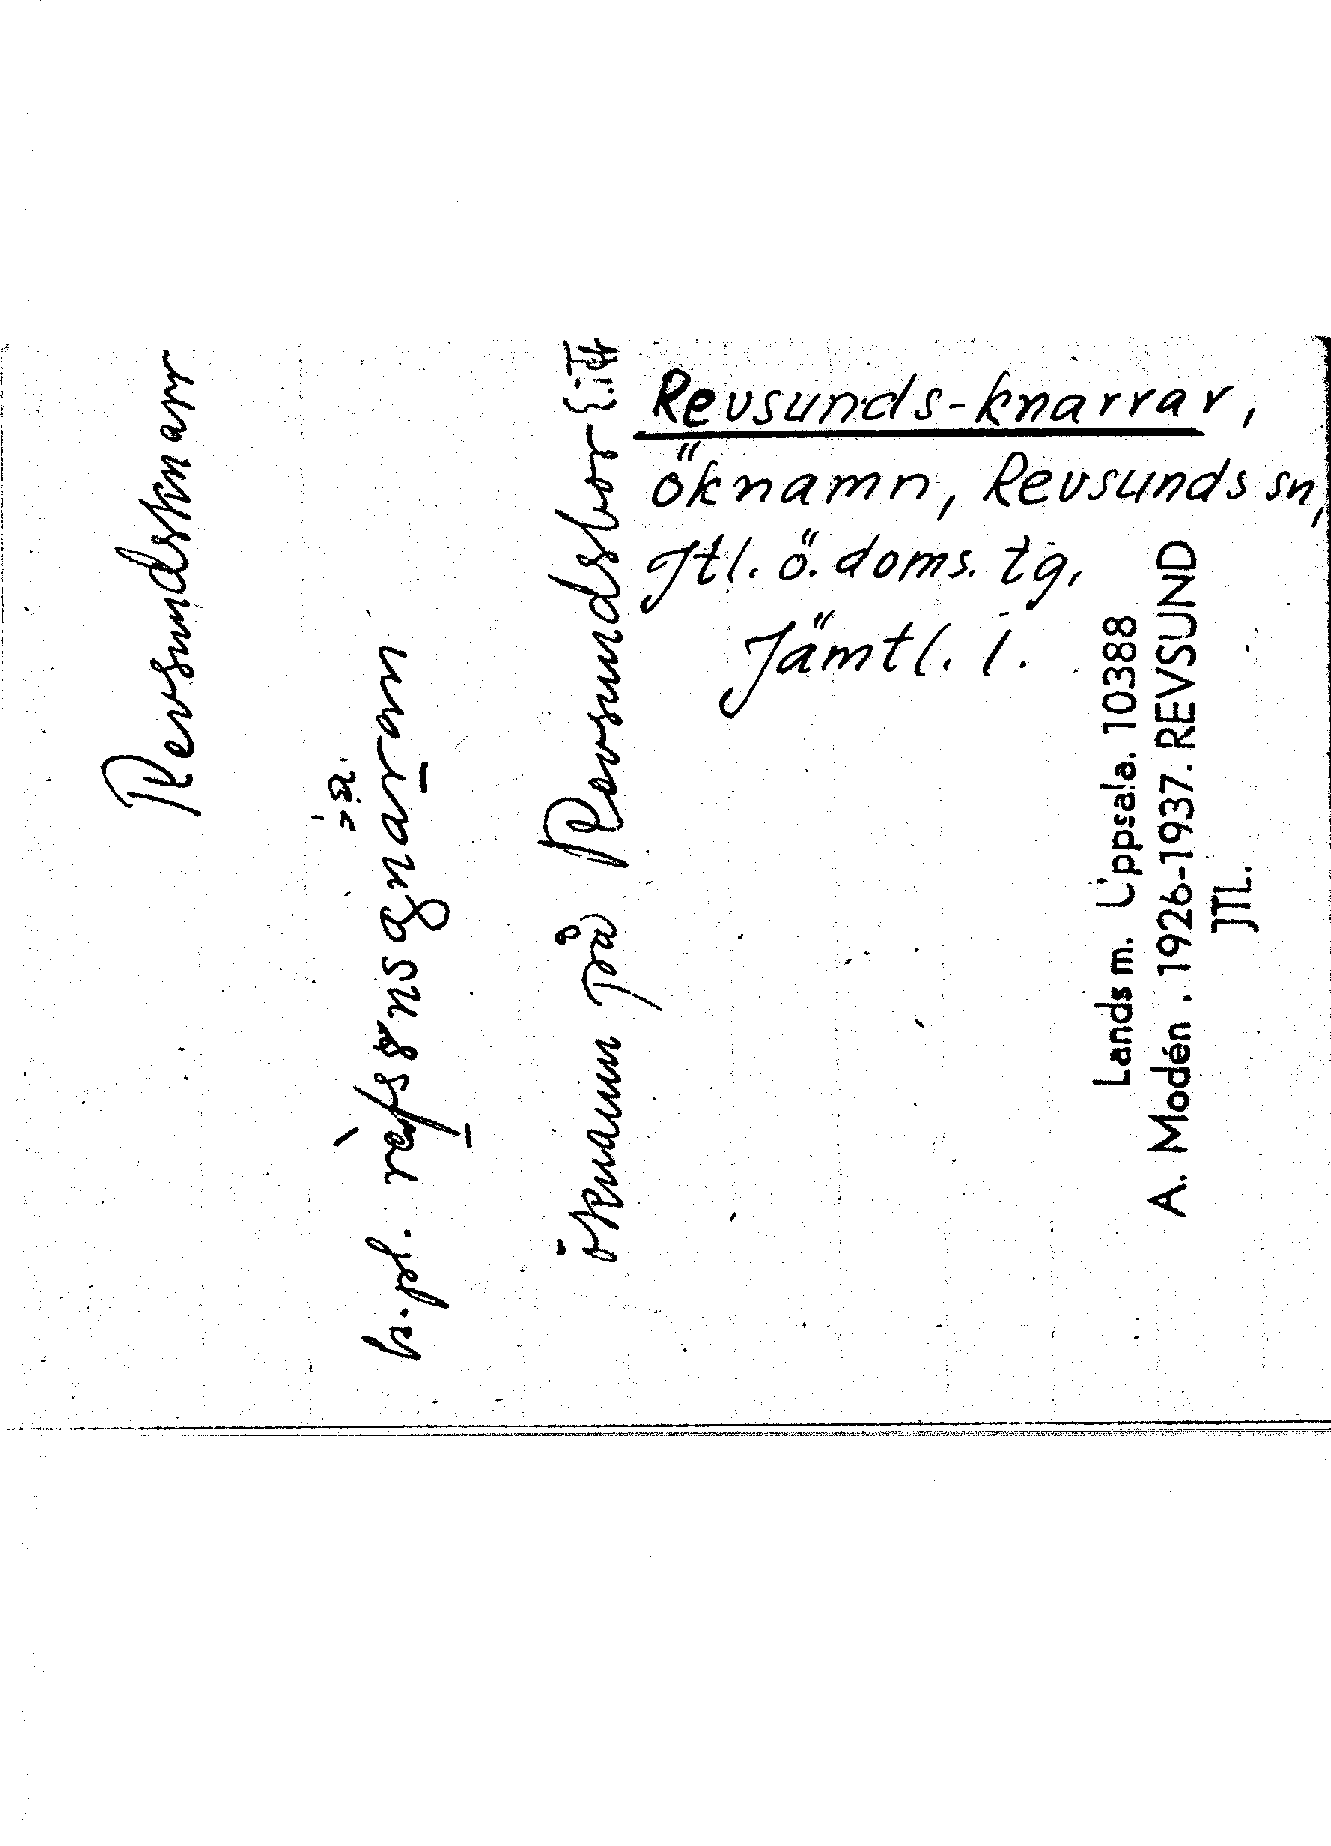 Revsunds-knarrar,
öknamn, Revsunds sn,
Jtl. ö. doms. tg,
Jämtl. l.
Revsundsknarr
b. pl.
öknamn på Revsundsbor
Landsm. Uppsala. 10388
A. Modén. 1926-1937. REVSUND
JTL.